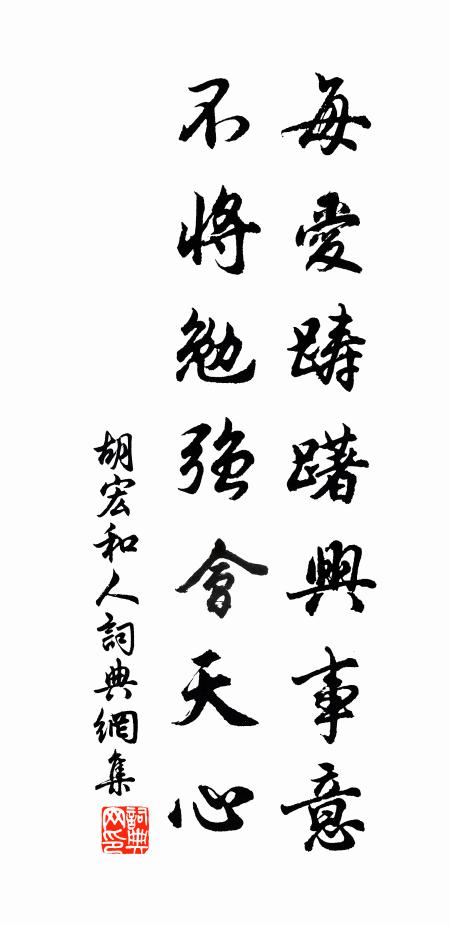 每愛躊躇興事意
不將勉強會天心
胡宏和人詞典網集
詞典網印